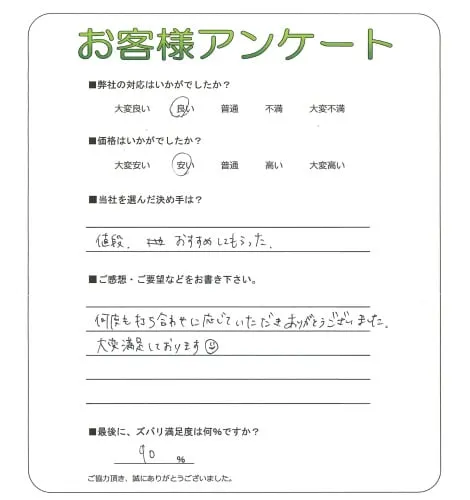 お客様アンケート
■弊社の対応はいかがでしたか？
大変良い 良い 普通 不満 大変不満
■価格はいかがでしたか？
大変安い 安い 普通 高い 大変高い
■当社を選んだ決め手は？
値段. おすすめしてもらった.
■ご感想・ご要望などをお書き下さい。
何度も打ち合わせに応じていただきありがとうございました.
大変満足しております
■最後に、ズバリ満足度は何％ですか？
90 %
ご協力頂き、誠にありがとうございました。